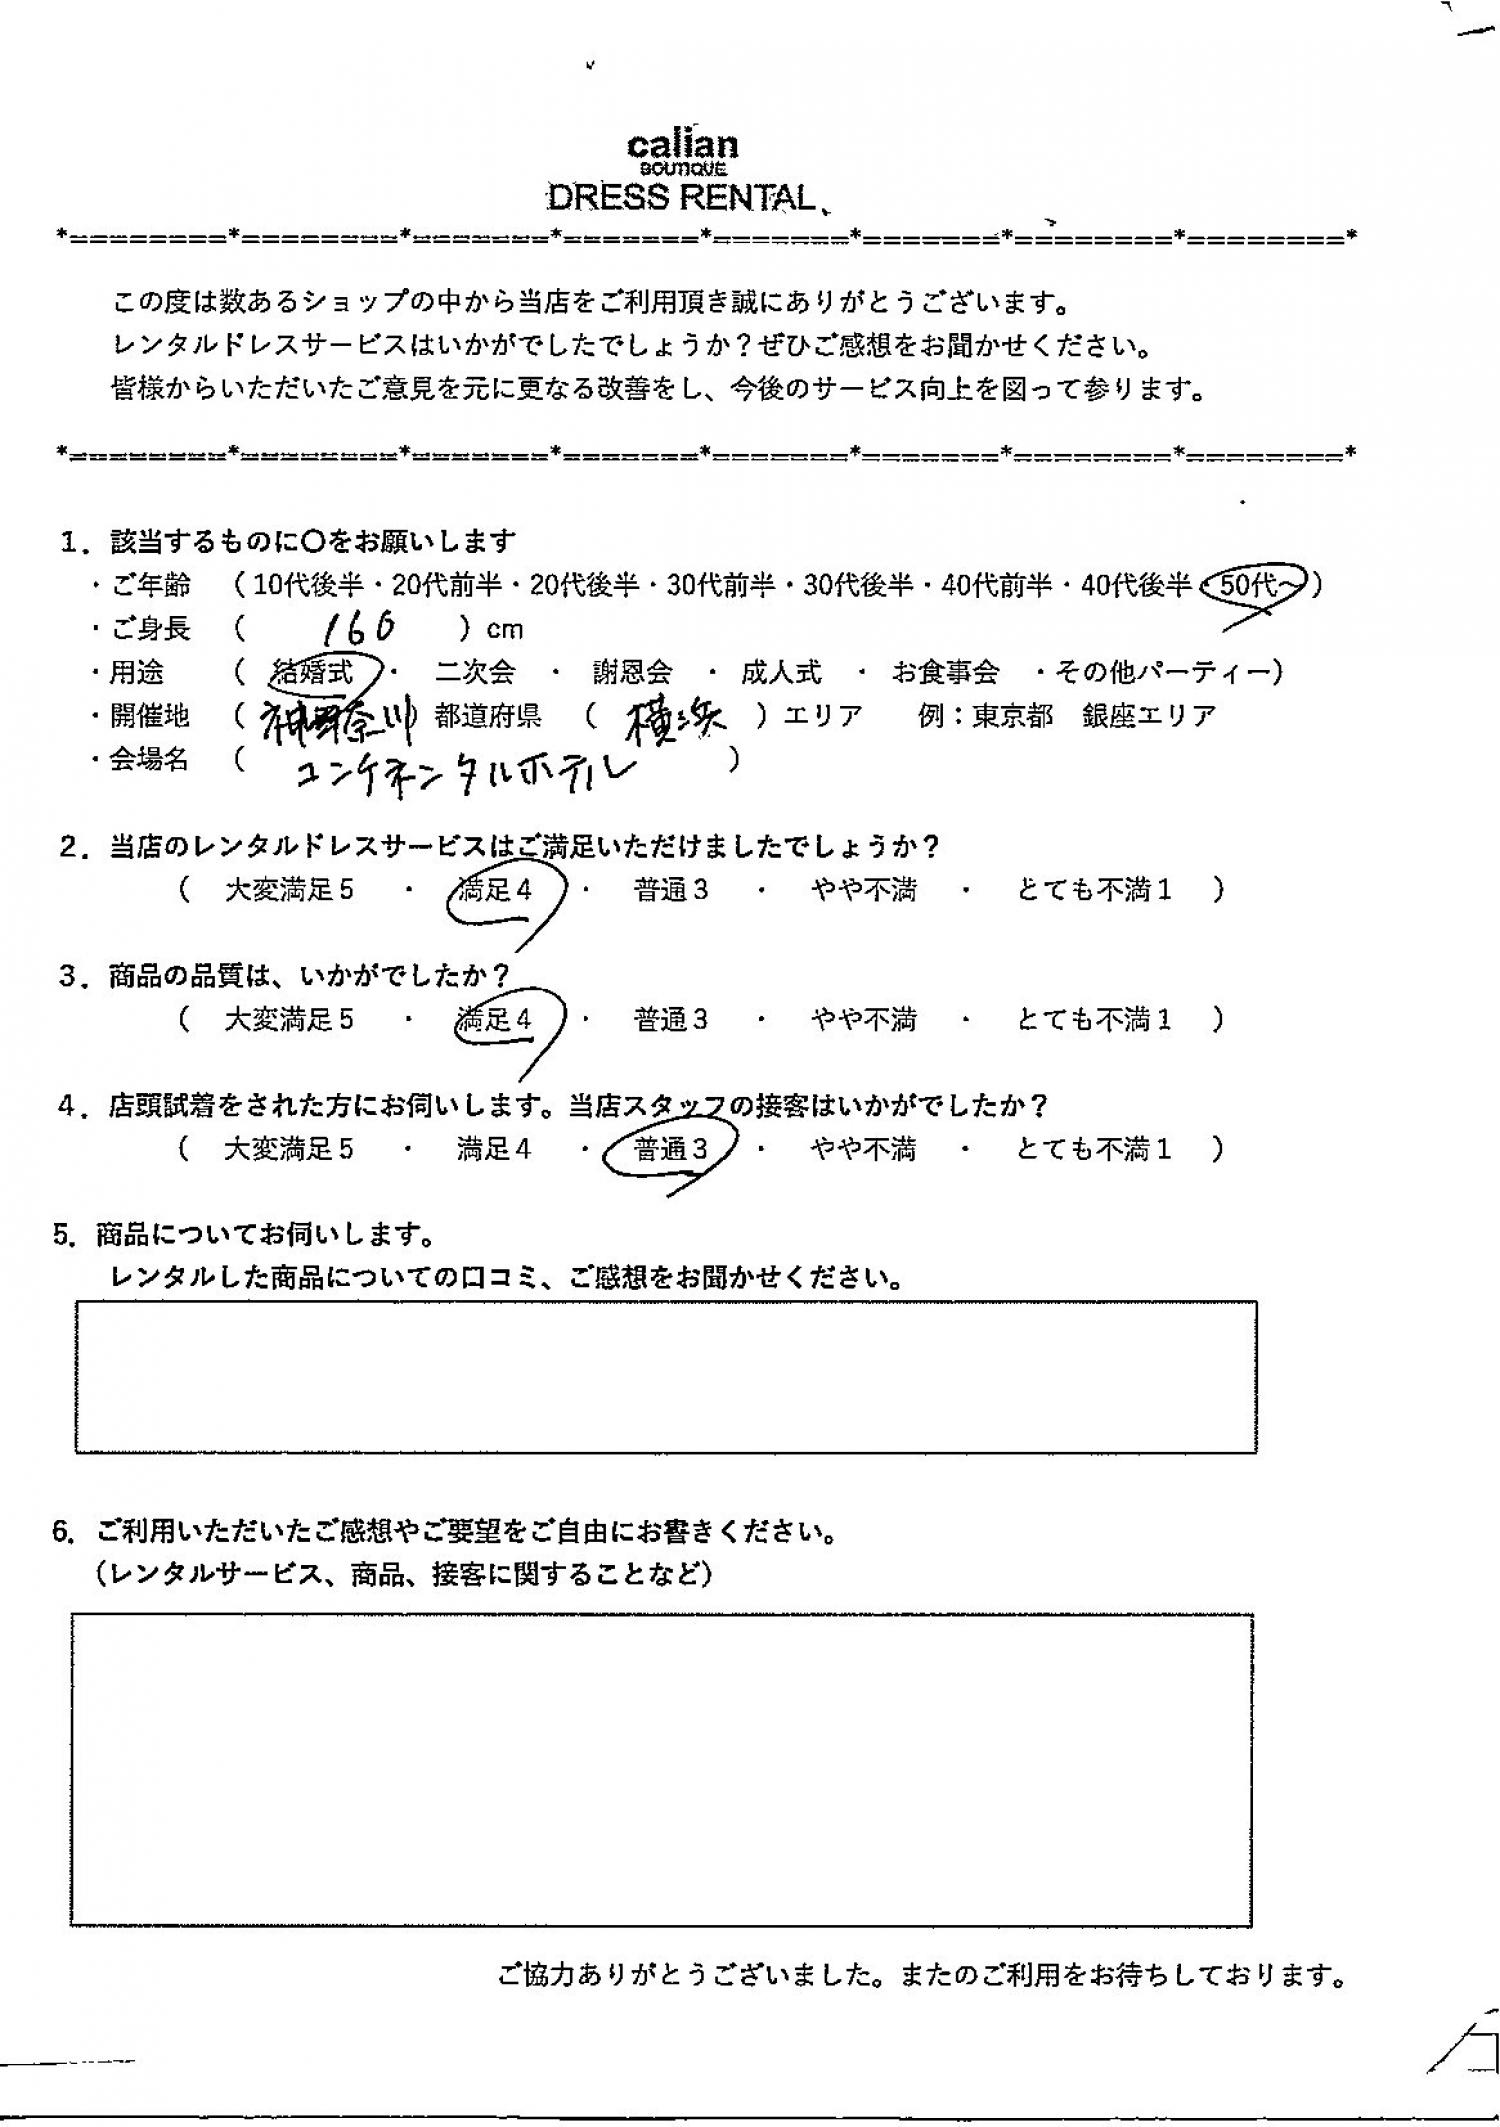 calian
BOUTIQUE
DRESS RENTAL
*========*========*=======*=======*=======*=======*========*========*
この度は数あるショップの中から当店をご利用頂き誠にありがとうございます。
レンタルドレスサービスはいかがでしたでしょうか？ぜひご感想をお聞かせください。
皆様からいただいたご意見を元に更なる改善をし、今後のサービス向上を図って参ります。
*========*========*=======*=======*=======*=======*========*========*
1．該当するものに〇をお願いします
・ご年齢 （10代後半・20代前半・20代後半・30代前半・30代後半・40代前半・40代後半・50代～）
・ご身長 （ 160 ）cm
・用途 （ 結婚式 ・ 二次会 ・ 謝恩会 ・ 成人式 ・ お食事会 ・その他パーティー）
・開催地 （ 神奈川 ）都道府県 （ 横浜 ）エリア 例：東京都 銀座エリア
・会場名 （ コンチネンタルホテル ）
2．当店のレンタルドレスサービスはご満足いただけましたでしょうか？
（ 大変満足5 ・ 満足4 ・ 普通3 ・ やや不満 ・ とても不満1 ）
3．商品の品質は、いかがでしたか？
（ 大変満足5 ・ 満足4 ・ 普通3 ・ やや不満 ・ とても不満1 ）
4．店頭試着をされた方にお伺いします。当店スタッフの接客はいかがでしたか？
（ 大変満足5 ・ 満足4 ・ 普通3 ・ やや不満 ・ とても不満1 ）
5．商品についてお伺いします。
レンタルした商品についての口コミ、ご感想をお聞かせください。
6．ご利用いただいたご感想やご要望をご自由にお書きください。
（レンタルサービス、商品、接客に関することなど）
ご協力ありがとうございました。またのご利用をお待ちしております。